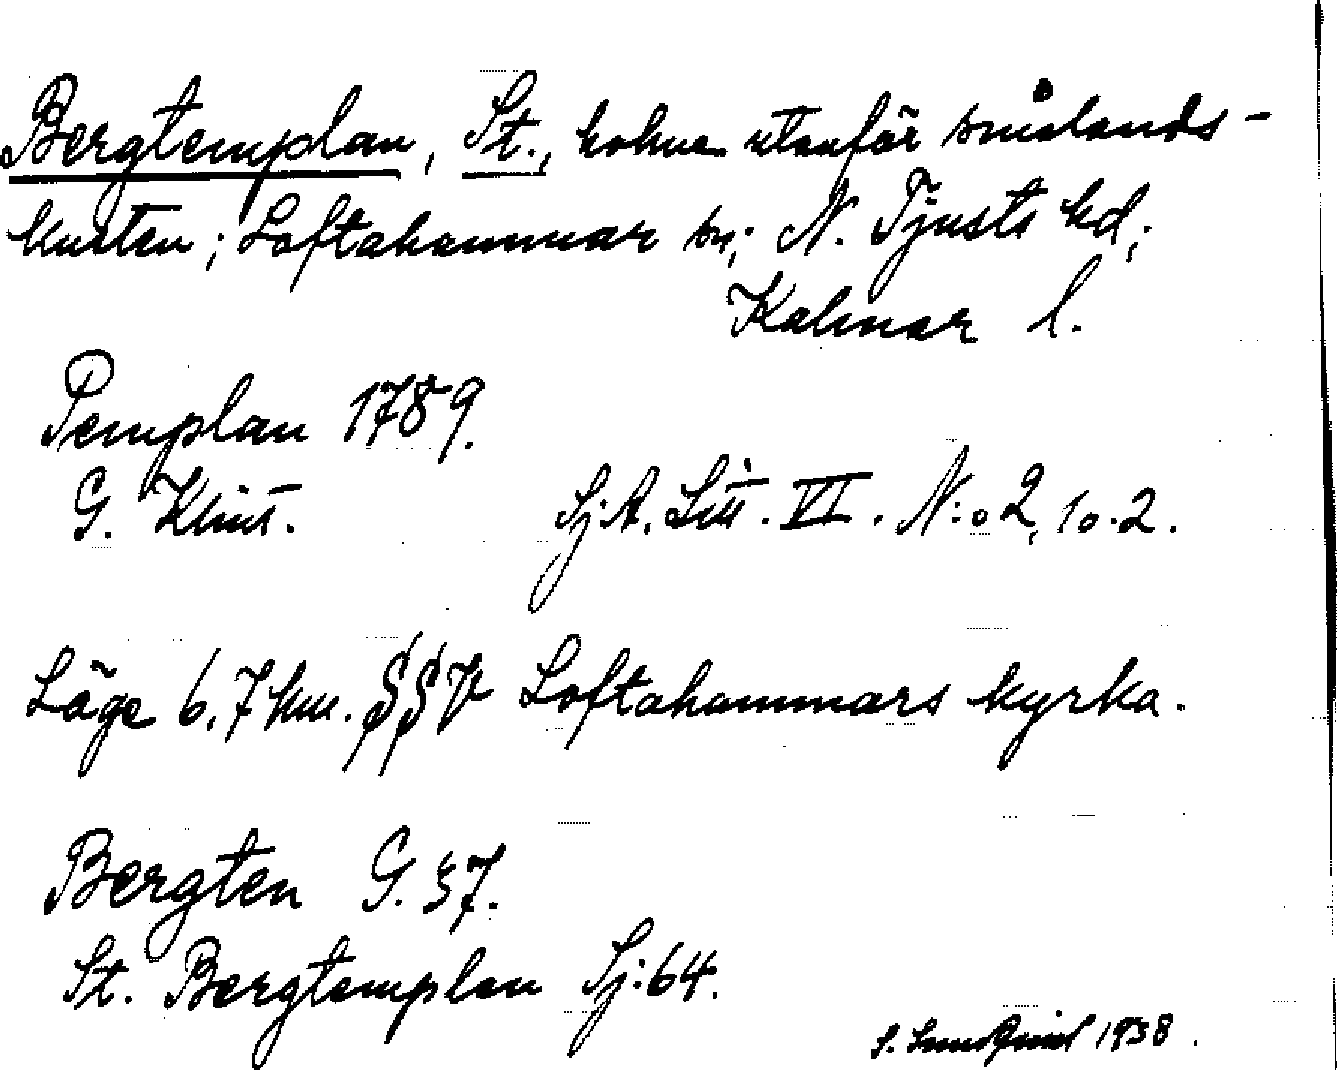 Bergtemplan, St., holme utanför smålands-
kusten; Loftahammar sn; N. Tjusts hd;
Kalmar l.
Pemplan 1789.
G. Klint. Sj.A. Litt. VI. N:o 2, 10.2.
Läge 6,7 km. SSV Loftahammars kyrka.
Bergten G. 37.
St. Bergtemplan Sj:64.
S. 1938.